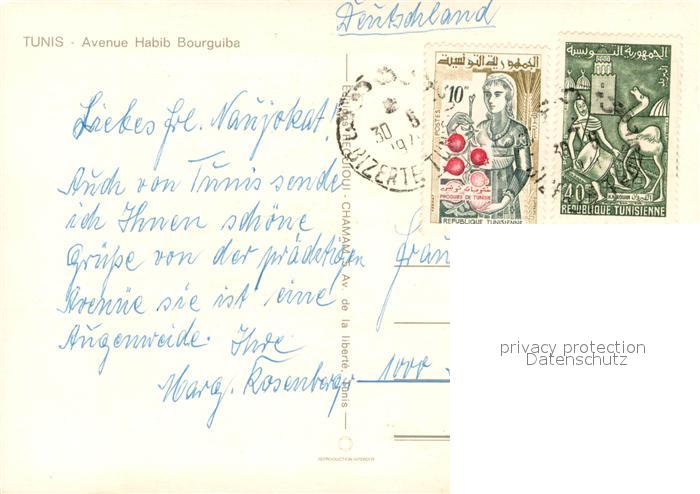 Deutschland
TUNIS - Avenue Habib Bourguiba
Liebes Frl. Naujokat!
Auch von Tunis sende
ich Ihnen schöne
Grüße von der prächtigen
Avenue sie ist eine
Augenweide. Ihre
Marg. Rosenberger
Frau
1000
الجمهورية التونسية
10
POSTES
PRODUITS DE TUNISIE
REPUBLIQUE TUNISIENNE
الجمهورية التونسية
40
KAIROUAN
REPUBLIQUE TUNISIENNE
30 6
BIZERTE
CHAMAM Av. de la liberté, Tunis
REPRODUCTION INTERDITE
privacy protection
Datenschutz